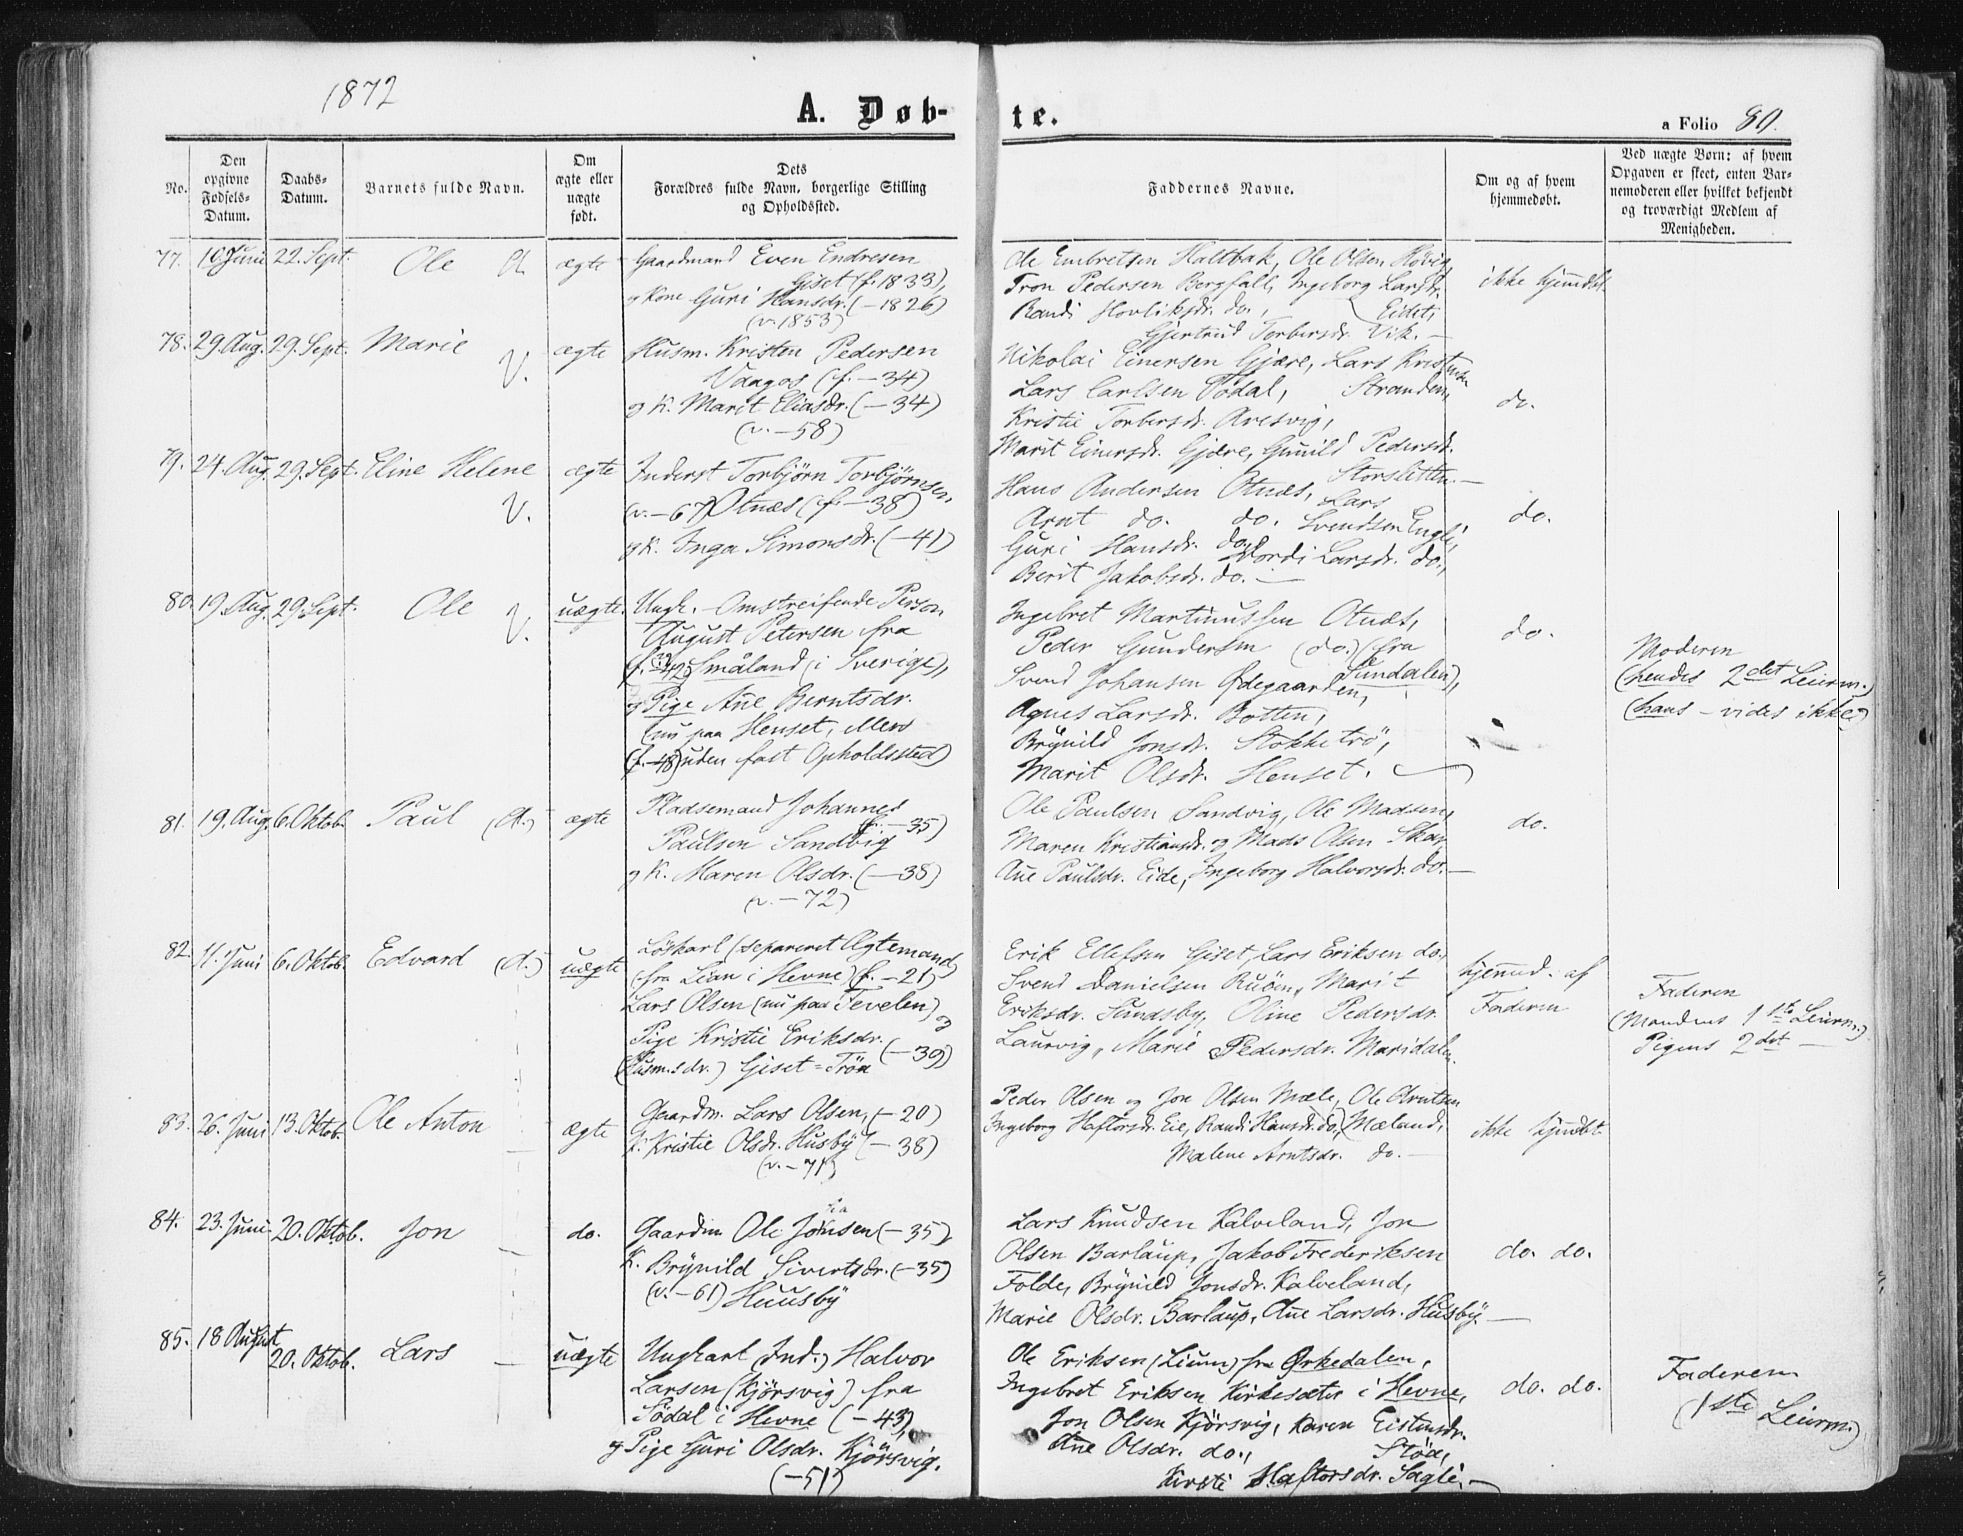 1872
A. Døb-
te.
a Folio 80.
No.
Den opgivne Fødsels-Datum.
Daabs-Datum.
Barnets fulde Navn.
Om ægte eller uægte født.
Dets Forældres fulde Navn, borgerlige Stilling og Opholdssted.
Faddernes Navne.
Om og af hvem hjemmedøbt.
Ved uægte Børn: af hvem Opgaven er skeet, enten Barnemoderen eller hvilket bekjendt og troværdigt Medlem af Menigheden.
77. 16 Juni 22. Sept. Ole A. ægte
Gaardmand Even Endresen
Giset (f. 1833),
og Kone Guri Hansdr. (- 1826)
(v. 1853)
Ole Embretsen Haltbak, Ole Olsen Høvig,
Tron Pedersen Bergfall, Ingeborg Larsdr.
Randi Hovliksdr. do., Eidet,
Gjertrud Torbersdr. Vik. -
ikke hjemdøbt
78. 29 Aug. 29. Sept. Marie V. ægte
Husm. Kristen Pedersen
Vaagos (f. - 34)
og K. Marit Eliasdr. (- 34)
(v. - 58)
Nikolai Einersen Gjære, Lars Kristensen
Lars Carlsen Todal, Stranden,
Kristie Torbersdr. Aresvig,
Marit Einersdr. Gjære, Gunild Pedersdr.
Storsletten. -
do.
79. 24. Aug. 29. Sept. Eline Helene V. ægte
Inderst Torbjørn Torbjørnsen,
(v. - 67) Otnæs (f. - 38)
og K. Inga Simonsdr. (- 41)
Hans Andersen Otnæs, Lars
Arnt do. do. Svendsen Engli,
Guri Hansdr. do., Mordi Larsdr. do.,
Berit Jakobsdr. do. -
do.
80. 19. Aug. 29. Sept. Ole V. uægte.
Ungk. - Omstreifende Person
August Petersen fra
(f. - 42?) Småland (i Sverige),
og Pige Ane Berntsdr.
(nu paa Henset, ellers
(f. - 48) uden fast Opholdssted)
Ingebret Martinussen Otnæs,
Peder Gundersen (do.) (fra
Sundalen),
Svend Johansen Ødegaarden,
Agnes Larsdr. Botten,
Brynild Jonsdr. Stokketrø,
Marit Olsdr. Henset.
do.
Moderen
(hendes 2det Leierm.)
(hans - vides ikke)
81. 19. Aug. 6. Oktob. Paul (A.) ægte
Pladsemand Johannes
Paulsen Sandvig (f. - 35)
og K. Maren Olsdr. (- 38)
(v. - 72)
Ole Paulsen Sandvig, Ole Madsen,
Maren Kristiansdr. og Mads Olsen Skar,
Ane Paulsdr. Eide, Ingeborg Halvorsdr. do. -
do.
82. 11. Juni 6. Oktob. Edvard (A.) uægte
Löskarl (separeret Ægtemand)
(fra Lian i Hevne) (f. - 21)
Lars Olsen (nu paa Tevelen) og
Pige Kristie Eriksdr.
(Husm.sdr.) Giset-Trøa (- 39)
Erik Ellefsen Giset, Lars Eriksen do.,
Svend Danielsen Ruöin, Marit
Eriksdr. Sundsby, Oline Pedersdr.
Laurvig, Marie Pedersdr. Maridalen.
hjemd. af
Faderen
Faderen
(Mandens 1ste Leierm.)
Pigens 2det -
83. 26. Juni 13. Oktob. Ole Anton - ægte
Gaardm. Lars Olsen, (- 20)
K. Kristie Olsdr. Husby (- 38)
(v. - 71)
Peder Olsen og Jon Olsen Mæle, Ole Arntsen
Ingeborg Haftorsdr. Eie, Randi Hansdr. do., (Mæland,
Malene Arntsdr. do. -
ikke hjemdøbt
84. 23. Juni 20. Oktob. Jon - do.
Gaardm. Ole Jonsen (- 35)
K. Brynild Sivertsdr. (- 35)
(v. - 61) Huusby
Lars Knudsen Kalveland, Jon
Olsen Barlaup, Jakob Frederiksen
Folde, Brynild Jonsdr. Kalveland,
Marie Olsdr. Barlaup, Ane Larsdr. Husby. -
do. do.
85. 18 August 20. Oktob. Lars - uægte
Ungkarl (Ind.) Halvor
Larsen (Kjørsvig) fra
Södal i Hevne (- 43)
og Pige Guri Olsdr. Kjørsvig.
(- 51)
Ole Eriksen (Lium) fra Ørkedalen,
Ingebret Eriksen Kirkesæter i Hevne,
Jon Olsen Kjørsvig, Karen Eistensdr.
Ane Olsdr. do., Stöa,
Kirsti Haftorsdr. Sagli. -
do. do.
Faderen
(1ste Leierm.)